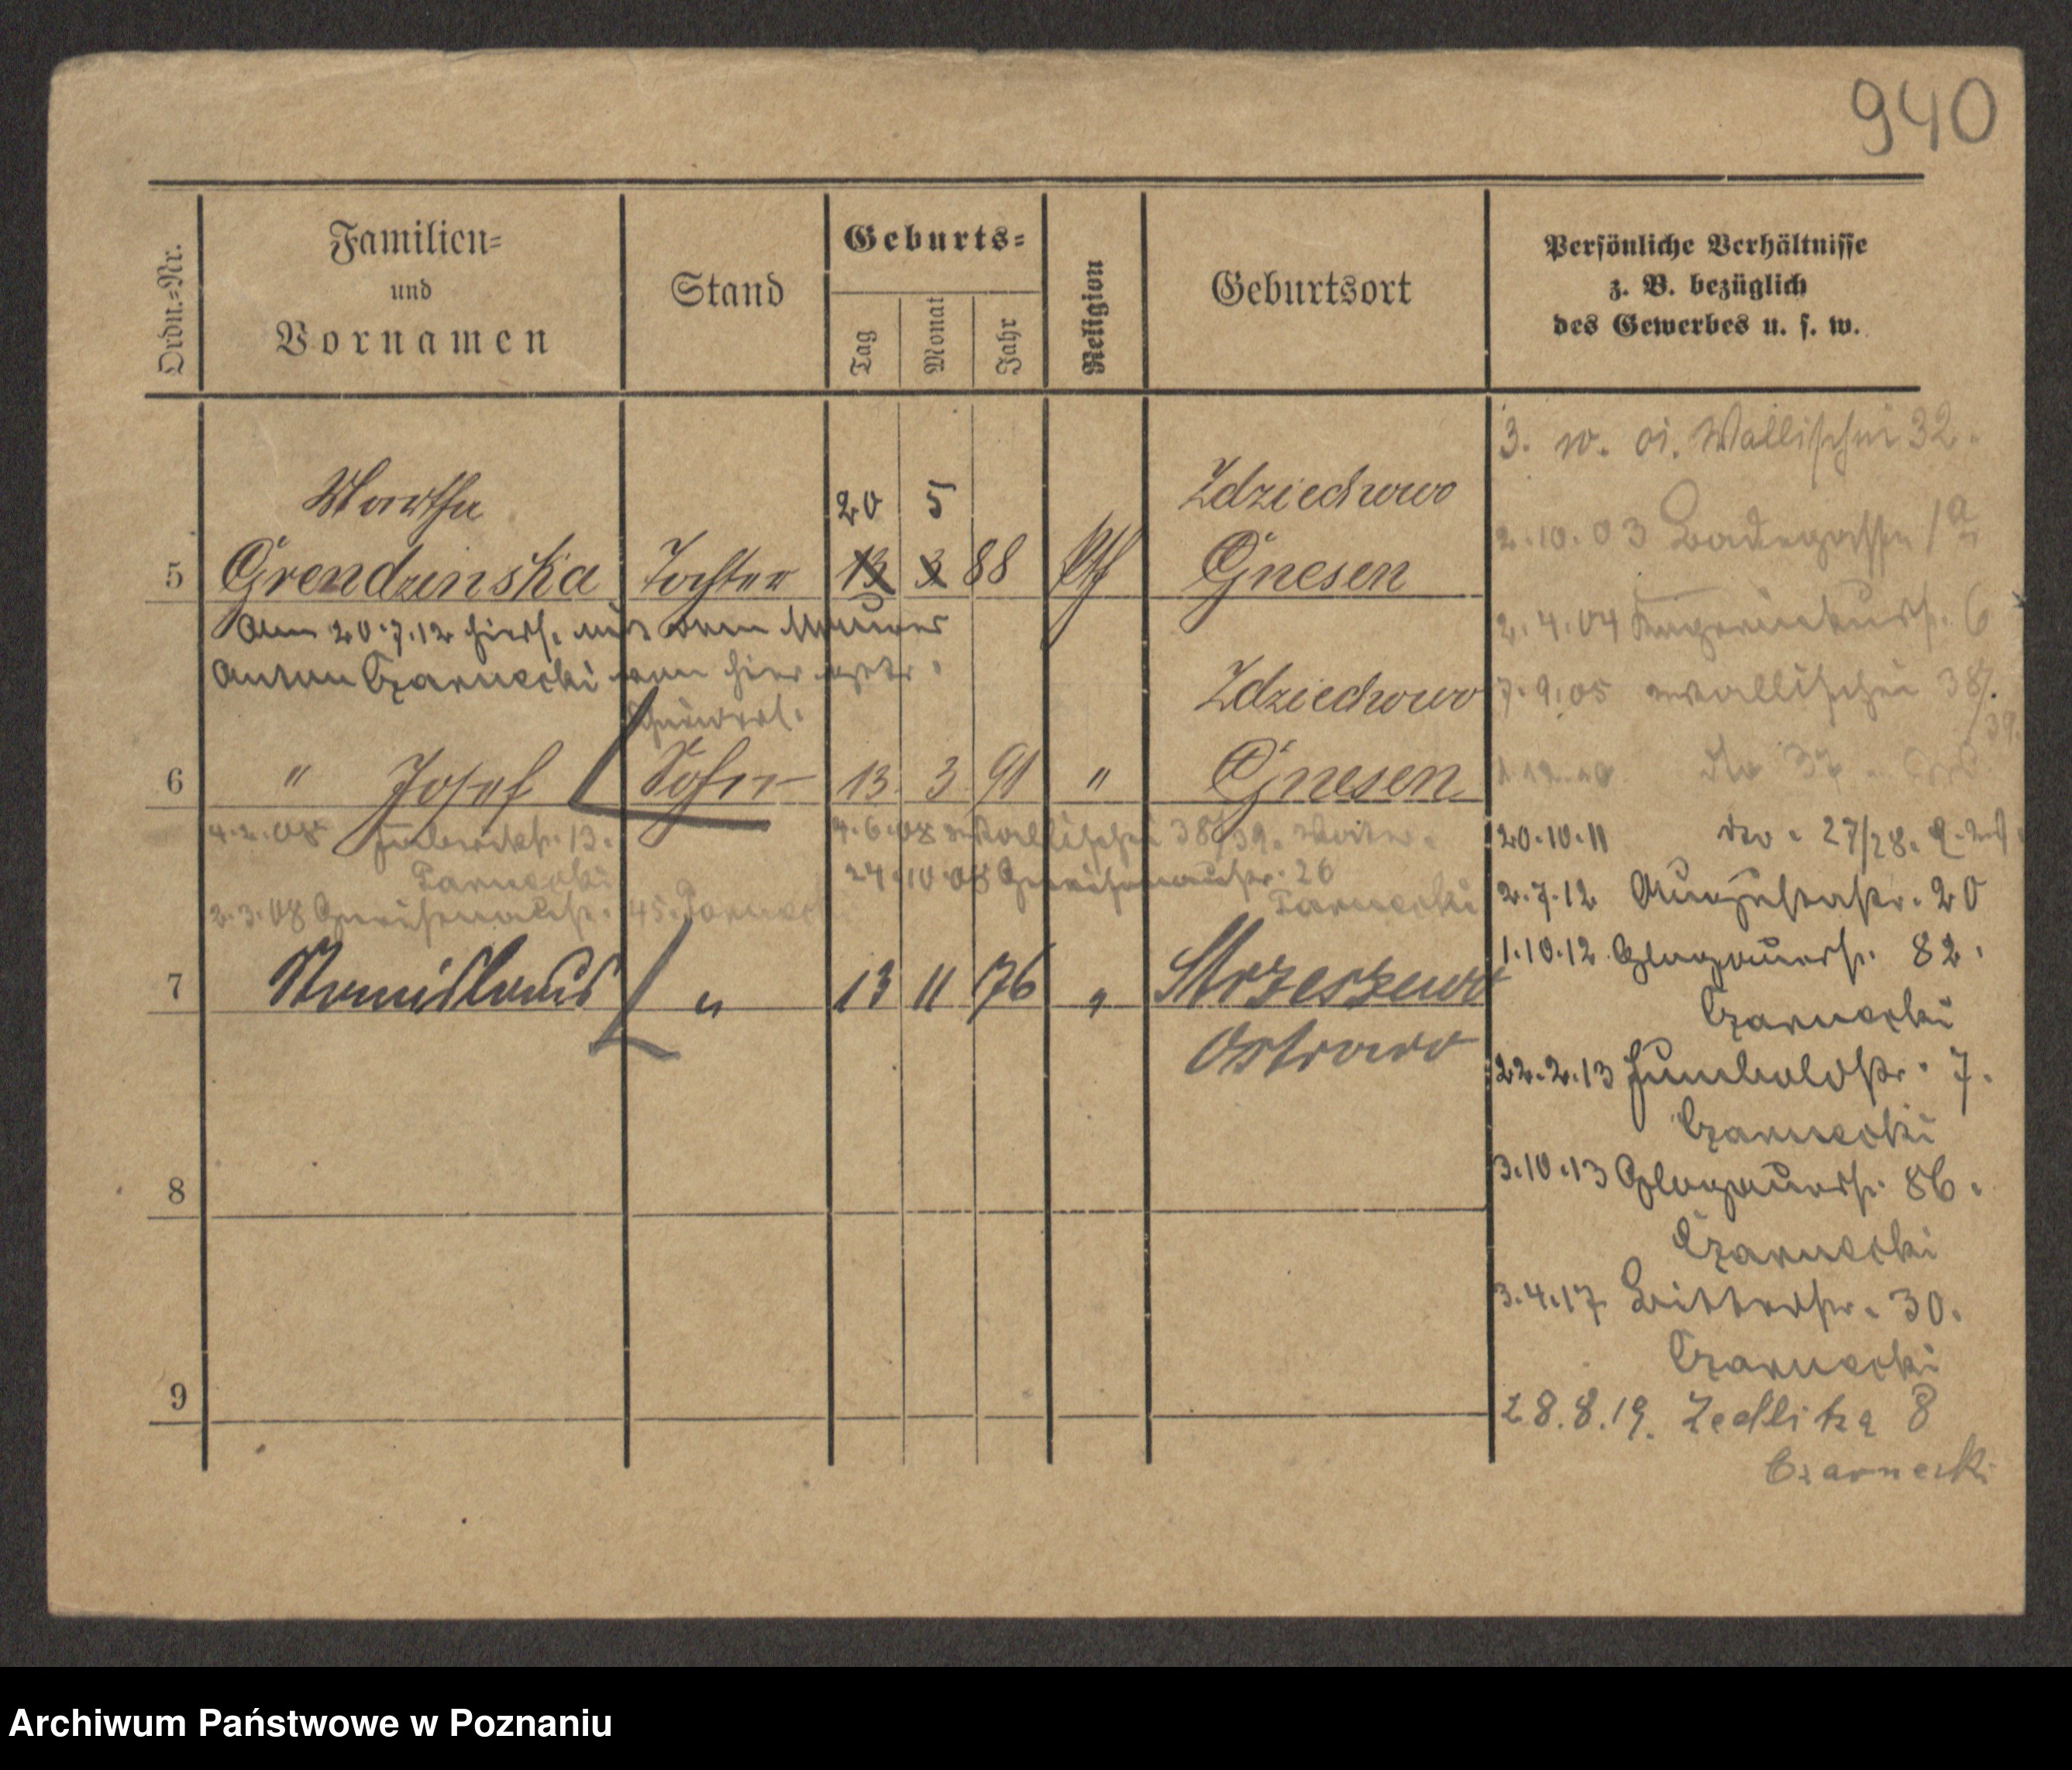 940
Ordn.=Nr.
Familien=
und
Vornamen
Stand
Geburts=
Tag
Monat
Jahr
Religion
Geburtsort
Persönliche Verhältnisse
z. B. bezüglich
des Gewerbes u. s. w.
3. Wallischei 32.
Martha
20 5
Zdziechowo
2.10.03 Badegasse 1a
5 Grendzinska Tochter 13 3 88 kth Gnesen
Am 20.7.12 hiers. mit dem Maurer
2.4.04 6
Anton Czarnecki von hier
Zdziechowo
7.9.05 Wallischei 38/39.
6 " Josef Sohn 13 3 91 " Gnesen
do 37
4.2.08 13.
4.6.08 Wallischei 38/39.
20.10.11 do. 27/28.
24.10.08 Gneisenaustr. 26
2.7.12 Augustastr. 20
2.3.08 Gneisenaustr. 45.
1.10.12 Glogauerstr. 82.
7 Stanislaus " 13 11 76 " Strzeszewo
Czarnecki
Ostrowo
22.2.13 Humboldtstr. 7.
Czarnecki
3.10.13 Glogauerstr. 86.
8
Czarnecki
3.4.17 Bitterstr. 30.
Czarnecki
9
28.8.19. Zedlitza 8
Czarnecki
Archiwum Państwowe w Poznaniu